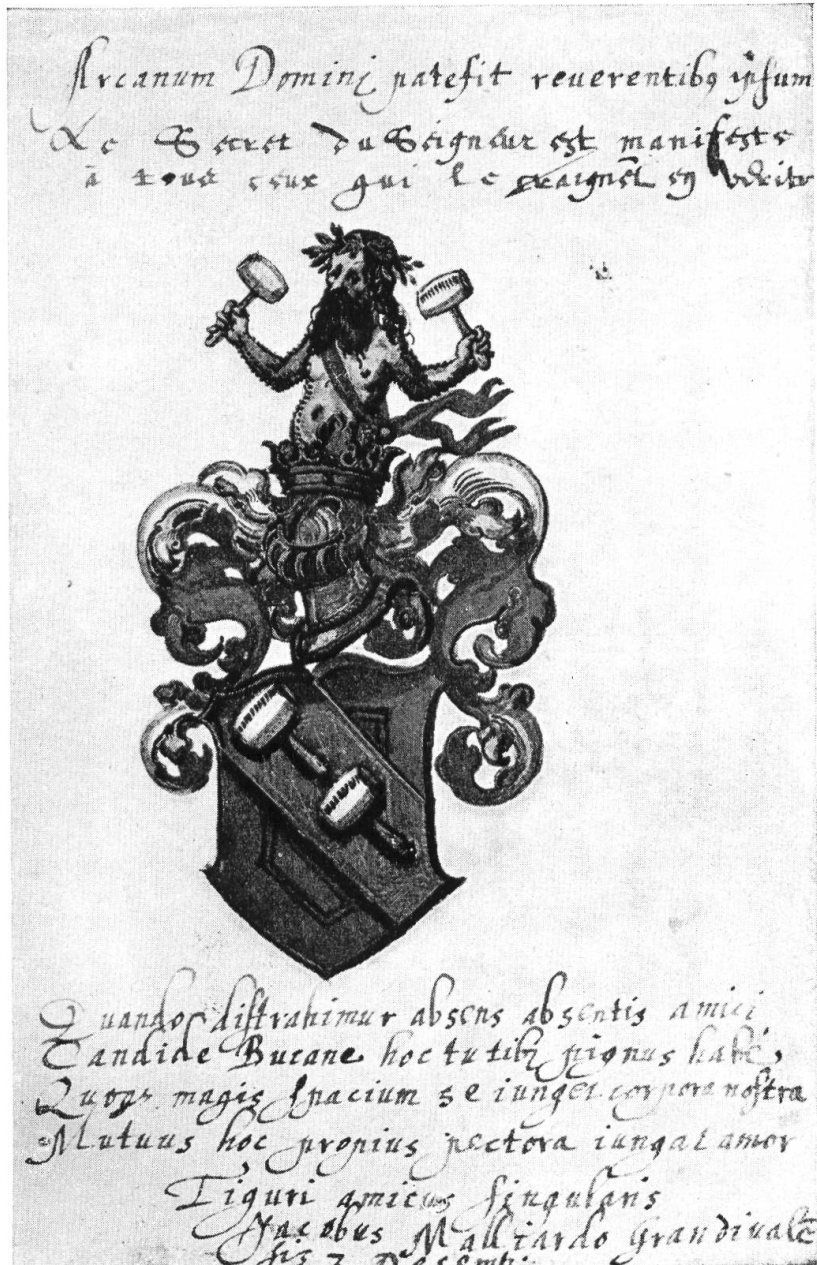 Arcanum Domini patefit reverentibꝰ ipsum
Le Secret du Seigneur est manifeste
a tous ceux qui le craignēt en verite
Quando distrahimur absens absentis amici
Candide Bucane hoc tu tibi pignus habe,
magis spacium se iunget corpora nostra
Mutuus hoc propius pectora iungat amor
Tiguri amicus singularis
Jacobus Malliardo Grandivalē
sis 7